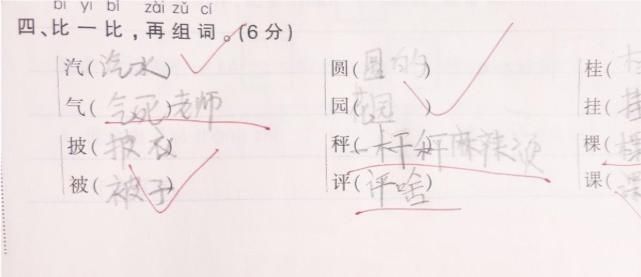 bǐ yì bǐ zài zǔ cí
四、比一比，再组词。(6分)
汽(汽水) 圆(圆的) 桂(
气(气死)老师 园(花园) 挂(挂
披(披衣) 秤(一杆秤麻辣烫 棵(棵
被(被子) 评(评啥) 课(课